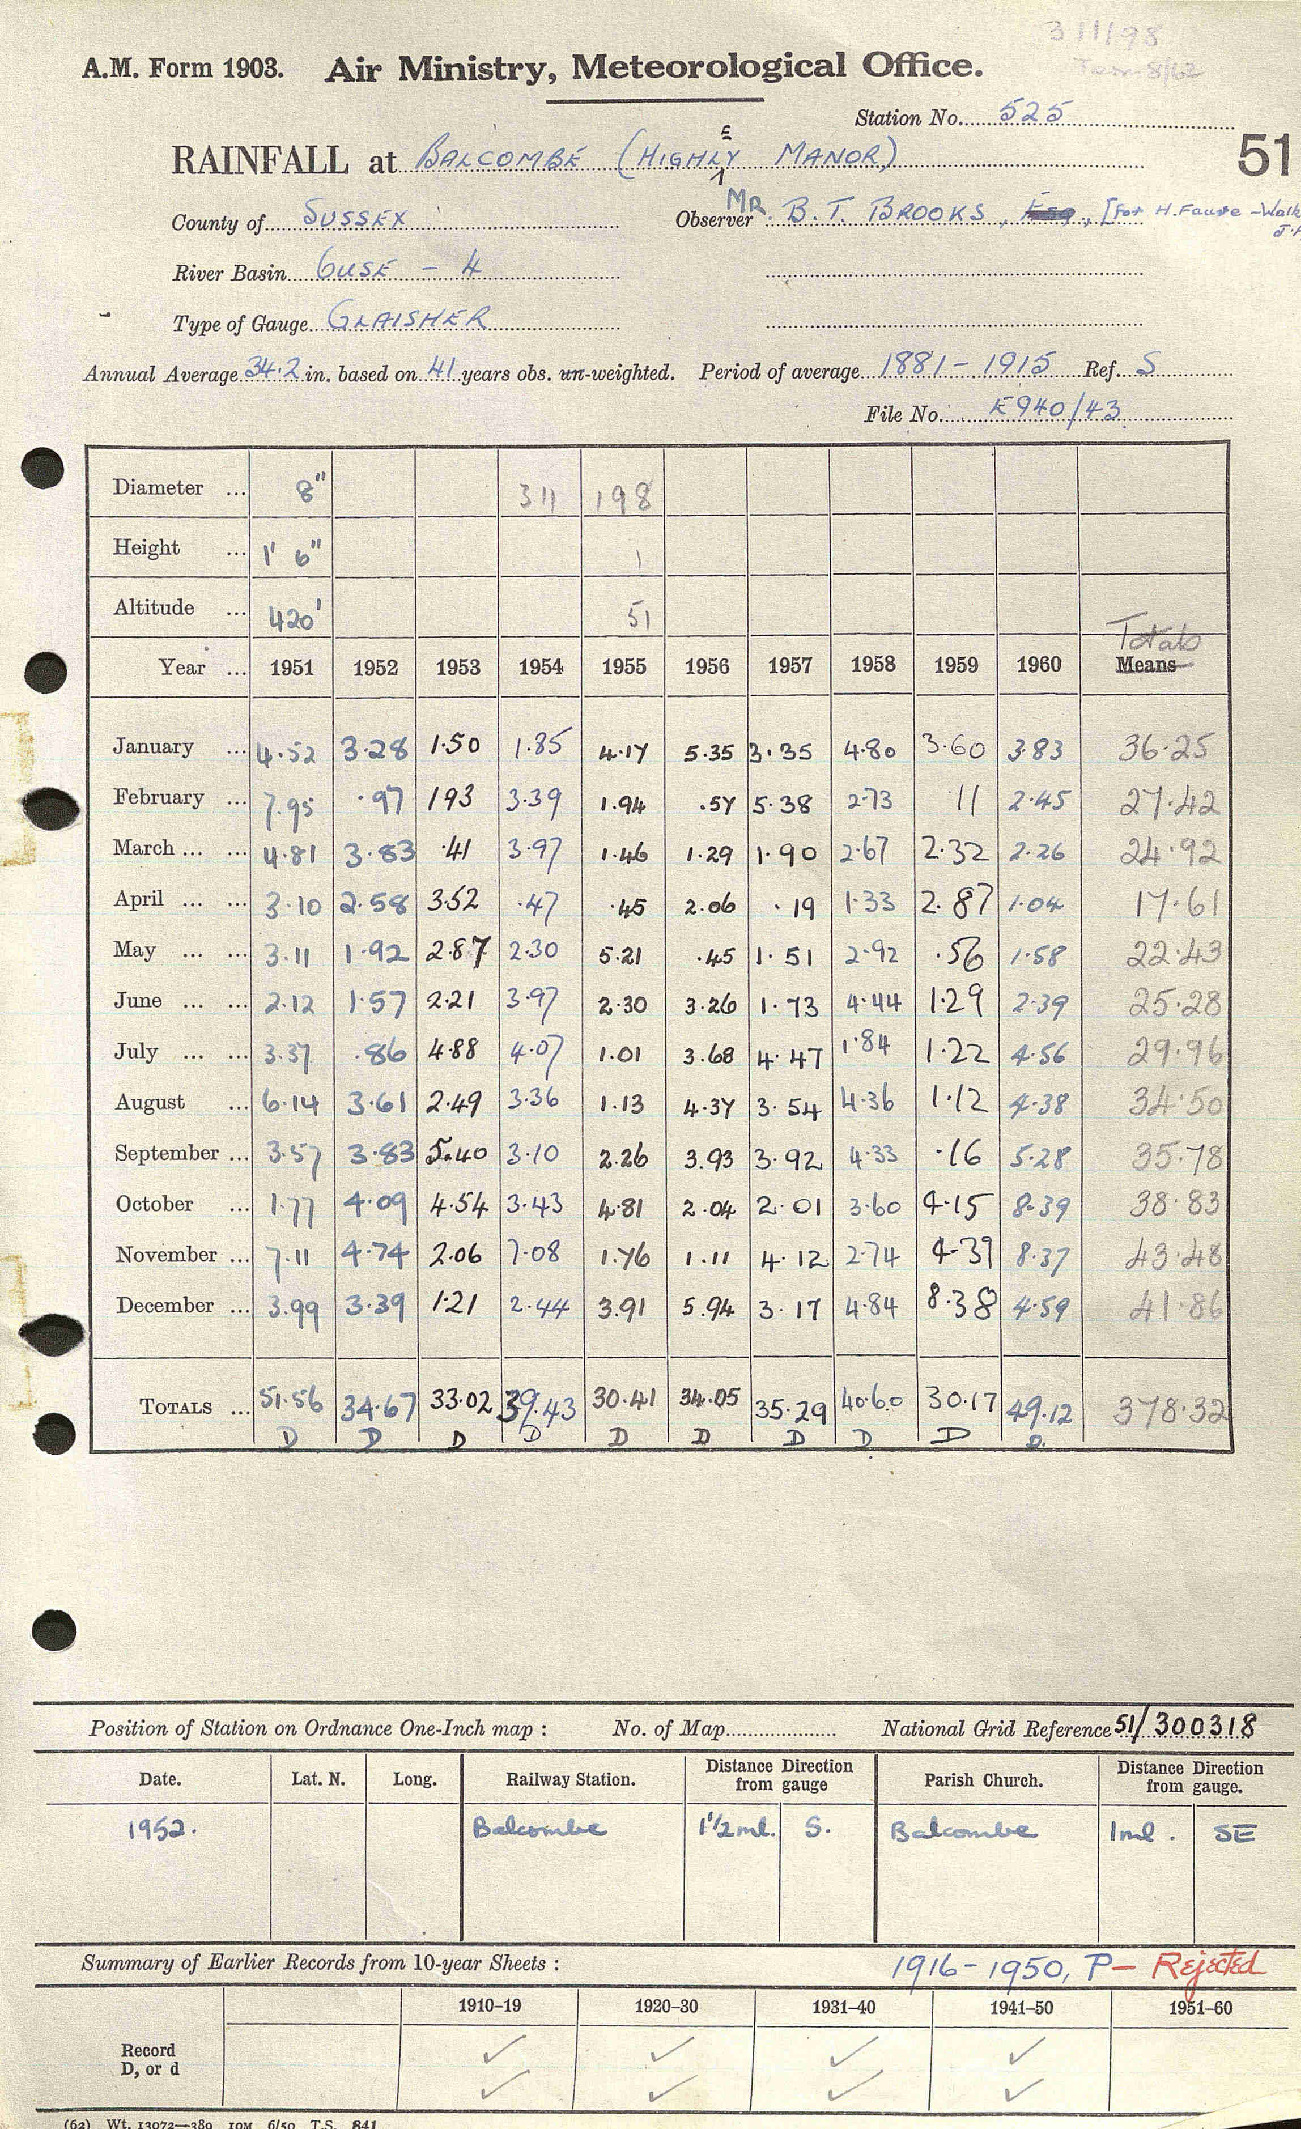 311/98
A.M. Form 1903. Air Ministry, Meteorological Office.
Station No. 525
E
RAINFALL at BALCOMBE (HIGHLY MANOR) 51
County of SUSSEX Observer MR. B. T. BROOKS, Esq, [for H. Faure-Walk
River Basin OUSE - 4
Type of Gauge GLAISHER
Annual Average 34.2 in. based on 41 years obs. un-weighted. Period of average 1881-1915 Ref. S
File No. E940/43
Diameter ... 8" 311 198
Height ... 1' 6" 1
Altitude ... 420' 51
Totals
Year ... 1951 1952 1953 1954 1955 1956 1957 1958 1959 1960 Means
January ... 4.52 3.28 1.50 1.85 4.17 5.35 3.35 4.80 3.60 3.83 36.25
February ... 7.95 .97 193 3.39 1.94 .57 5.38 2.73 11 2.45 27.42
March ... ... 4.81 3.83 .41 3.97 1.46 1.29 1.90 2.67 2.32 2.26 24.92
April ... ... 3.10 2.58 3.52 .47 .45 2.06 .19 1.33 2.87 1.04 17.61
May ... ... 3.11 1.92 2.87 2.30 5.21 .45 1.51 2.92 .56 1.58 22.43
June ... ... 2.12 1.57 2.21 3.97 2.30 3.26 1.73 4.44 1.29 2.39 25.28
July ... ... 3.37 .86 4.88 4.07 1.01 3.68 4.47 1.84 1.22 4.56 29.96
August ... 6.14 3.61 2.49 3.36 1.13 4.37 3.54 4.36 1.12 4.38 34.50
September ... 3.57 3.83 5.40 3.10 2.26 3.93 3.92 4.33 .16 5.28 35.78
October ... 1.77 4.09 4.54 3.43 4.81 2.04 2.01 3.60 4.15 8.39 38.83
November ... 7.11 4.74 2.06 7.08 1.76 1.11 4.12 2.74 4.39 8.37 43.48
December ... 3.99 3.39 1.21 2.44 3.91 5.94 3.17 4.84 8.38 4.59 41.86
TOTALS ... 51.56 34.67 33.02 39.43 30.41 34.05 35.29 40.60 30.17 49.12 378.32
D D D D D D D D D D
Position of Station on Ordnance One-Inch map : No. of Map National Grid Reference 51/300318
Date. Lat. N. Long. Railway Station. Distance Direction from gauge Parish Church. Distance Direction from gauge.
1952. Balcombe 1½ ml. S. Balcombe 1ml. SE
Summary of Earlier Records from 10-year Sheets : 1916-1950, P - Rejected
1910-19 1920-30 1931-40 1941-50 1951-60
Record ✓ ✓ ✓ ✓
D, or d ✓ ✓ ✓ ✓
(62) Wt. 13072—389 10M 6/50 T.S. 841